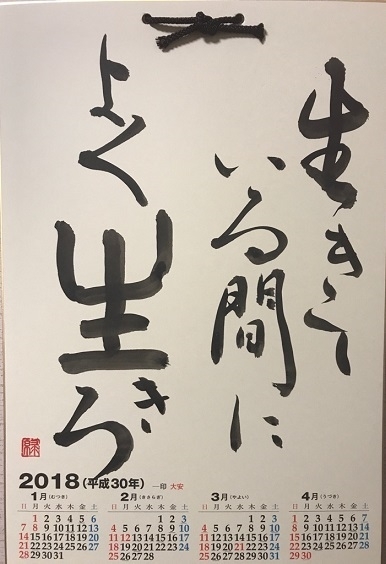 生きて
いる間に
よく生きろ
2018(平成30年) ―印 大安
1月(むつき)
日 月 火 水 木 金 土
1 2 3 4 5 6
7 8 9 10 11 12 13
14 15 16 17 18 19 20
21 22 23 24 25 26 27
28 29 30 31
2月(きさらぎ)
日 月 火 水 木 金 土
1 2 3
4 5 6 7 8 9 10
11 12 13 14 15 16 17
18 19 20 21 22 23 24
25 26 27 28
3月(やよい)
日 月 火 水 木 金 土
1 2 3
4 5 6 7 8 9 10
11 12 13 14 15 16 17
18 19 20 21 22 23 24
25 26 27 28 29 30 31
4月(うづき)
日 月 火 水 木 金 土
1 2 3 4 5 6 7
8 9 10 11 12 13 14
15 16 17 18 19 20 21
22 23 24 25 26 27 28
29 30